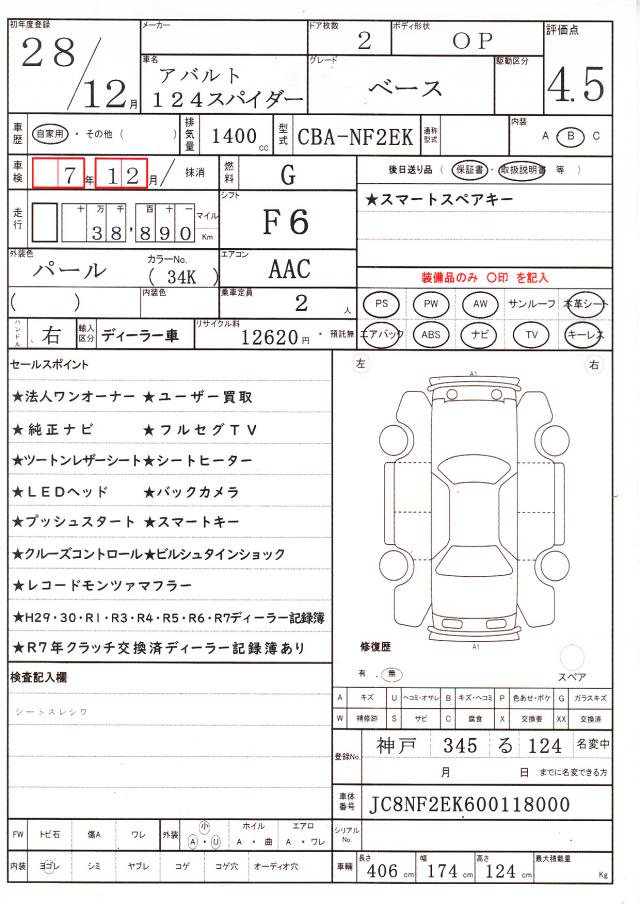 初年度登録 メーカー ドア枚数 ボディ形状 評価点
28/12月 2 OP 4.5
車名 グレード 駆動区分
アバルト
124スパイダー ベース
車歴 自家用・その他( ) 排気量 1400cc 型式 CBA-NF2EK 通称型式 内装 A・B C
車検 7年12月/ 抹消 燃料 G 後日送り品(保証書・取扱説明書 等)
走行 十万千百十一 38,890 マイル Km シフト F6 ★スマートスペアキー
外装色 パール カラーNo. (34K) エアコン AAC 装備品のみ 〇印 を記入
( ) 内装色 乗車定員 2人 PS PW AW サンルーフ 本革シート
ハンドル 右 輸入区分 ディーラー車 リサイクル料 12620円・預託無 エアバック ABS ナビ TV キーレス
セールスポイント 左 A1 右
★法人ワンオーナー ★ユーザー買取
★純正ナビ ★フルセグTV
★ツートンレザーシート★シートヒーター
★LEDヘッド ★バックカメラ
★プッシュスタート ★スマートキー
★クルーズコントロール★ビルシュタインショック
★レコードモンツァマフラー
★H29・30・R1・R3・R4・R5・R6・R7ディーラー記録簿
★R7年クラッチ交換済ディーラー記録簿あり
修復歴 A1
有・無 スペア
検査記入欄
シートスレシワ
A キズ U ヘコミ・オサレ B キズ・ヘコミ P 色あせ・ボケ G ガラスキズ
W 補修跡 S サビ C 腐食 X 交換要 XX 交換済
登録No. 神戸 345 る 124 名変中
月 日 までに名変できる方
車体番号 JC8NF2EK600118000
シリアルNo.
FW トビ石 傷A ワレ 外装 小 A・U ホイル A・曲 エアロ A・ワレ
内装 ヨゴレ シミ ヤブレ コゲ コゲ穴 オーディオ穴
車輌 長さ 406cm 幅 174cm 高さ 124cm 最大積載量 Kg